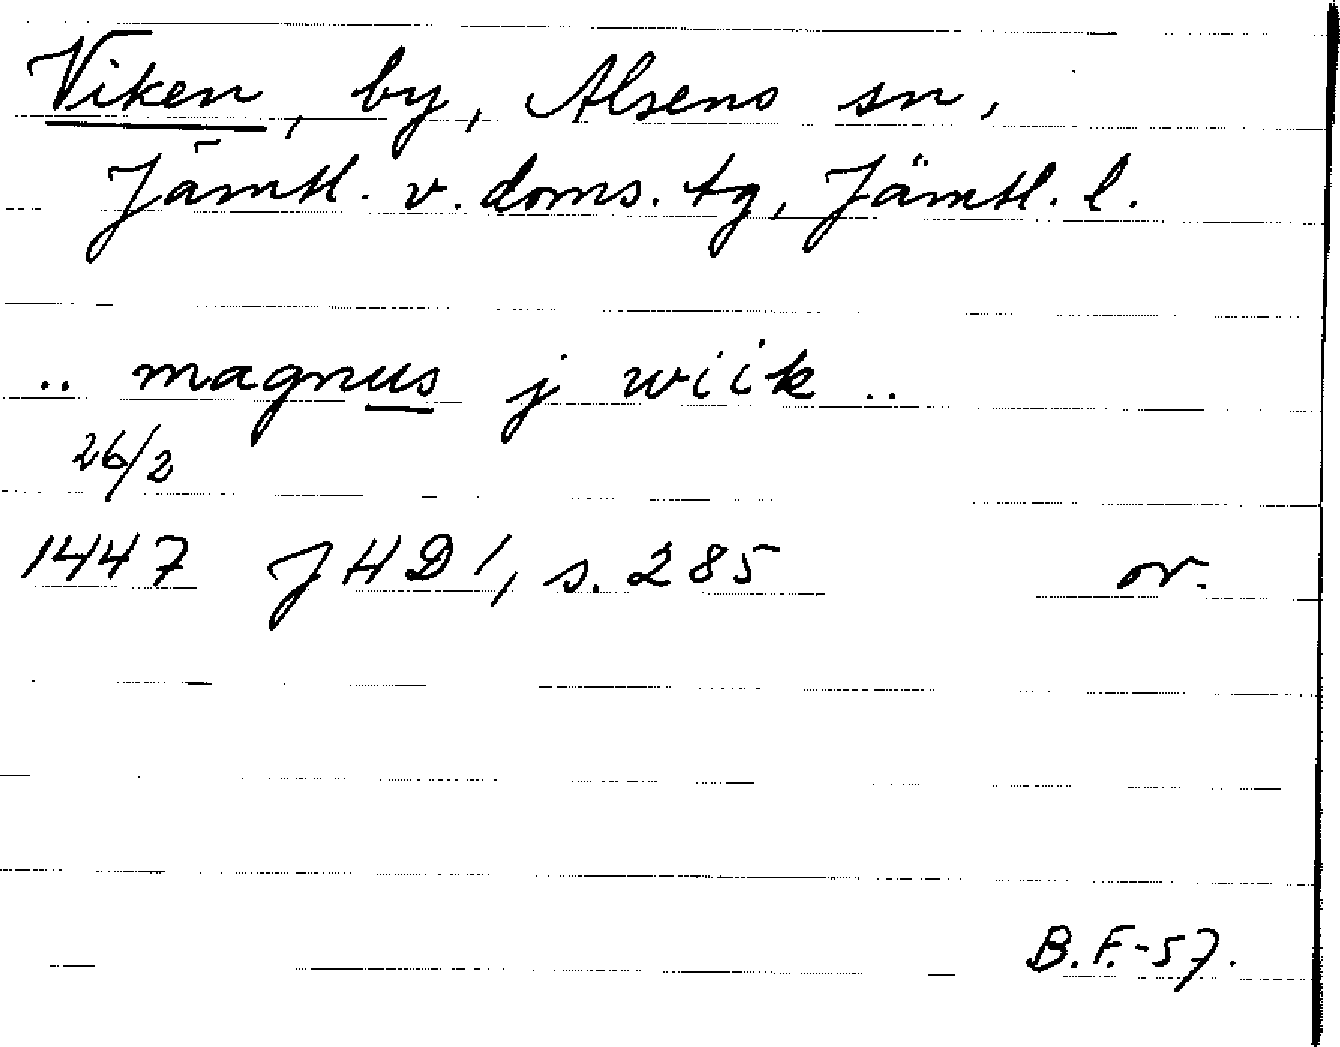 Viken, by, Alsens sn,
Jämtl. v. doms. tg, Jämtl. l.
.. magnus j wiik ..
26/2
1447 JHD 1, s. 285 or.
B.F.-57.